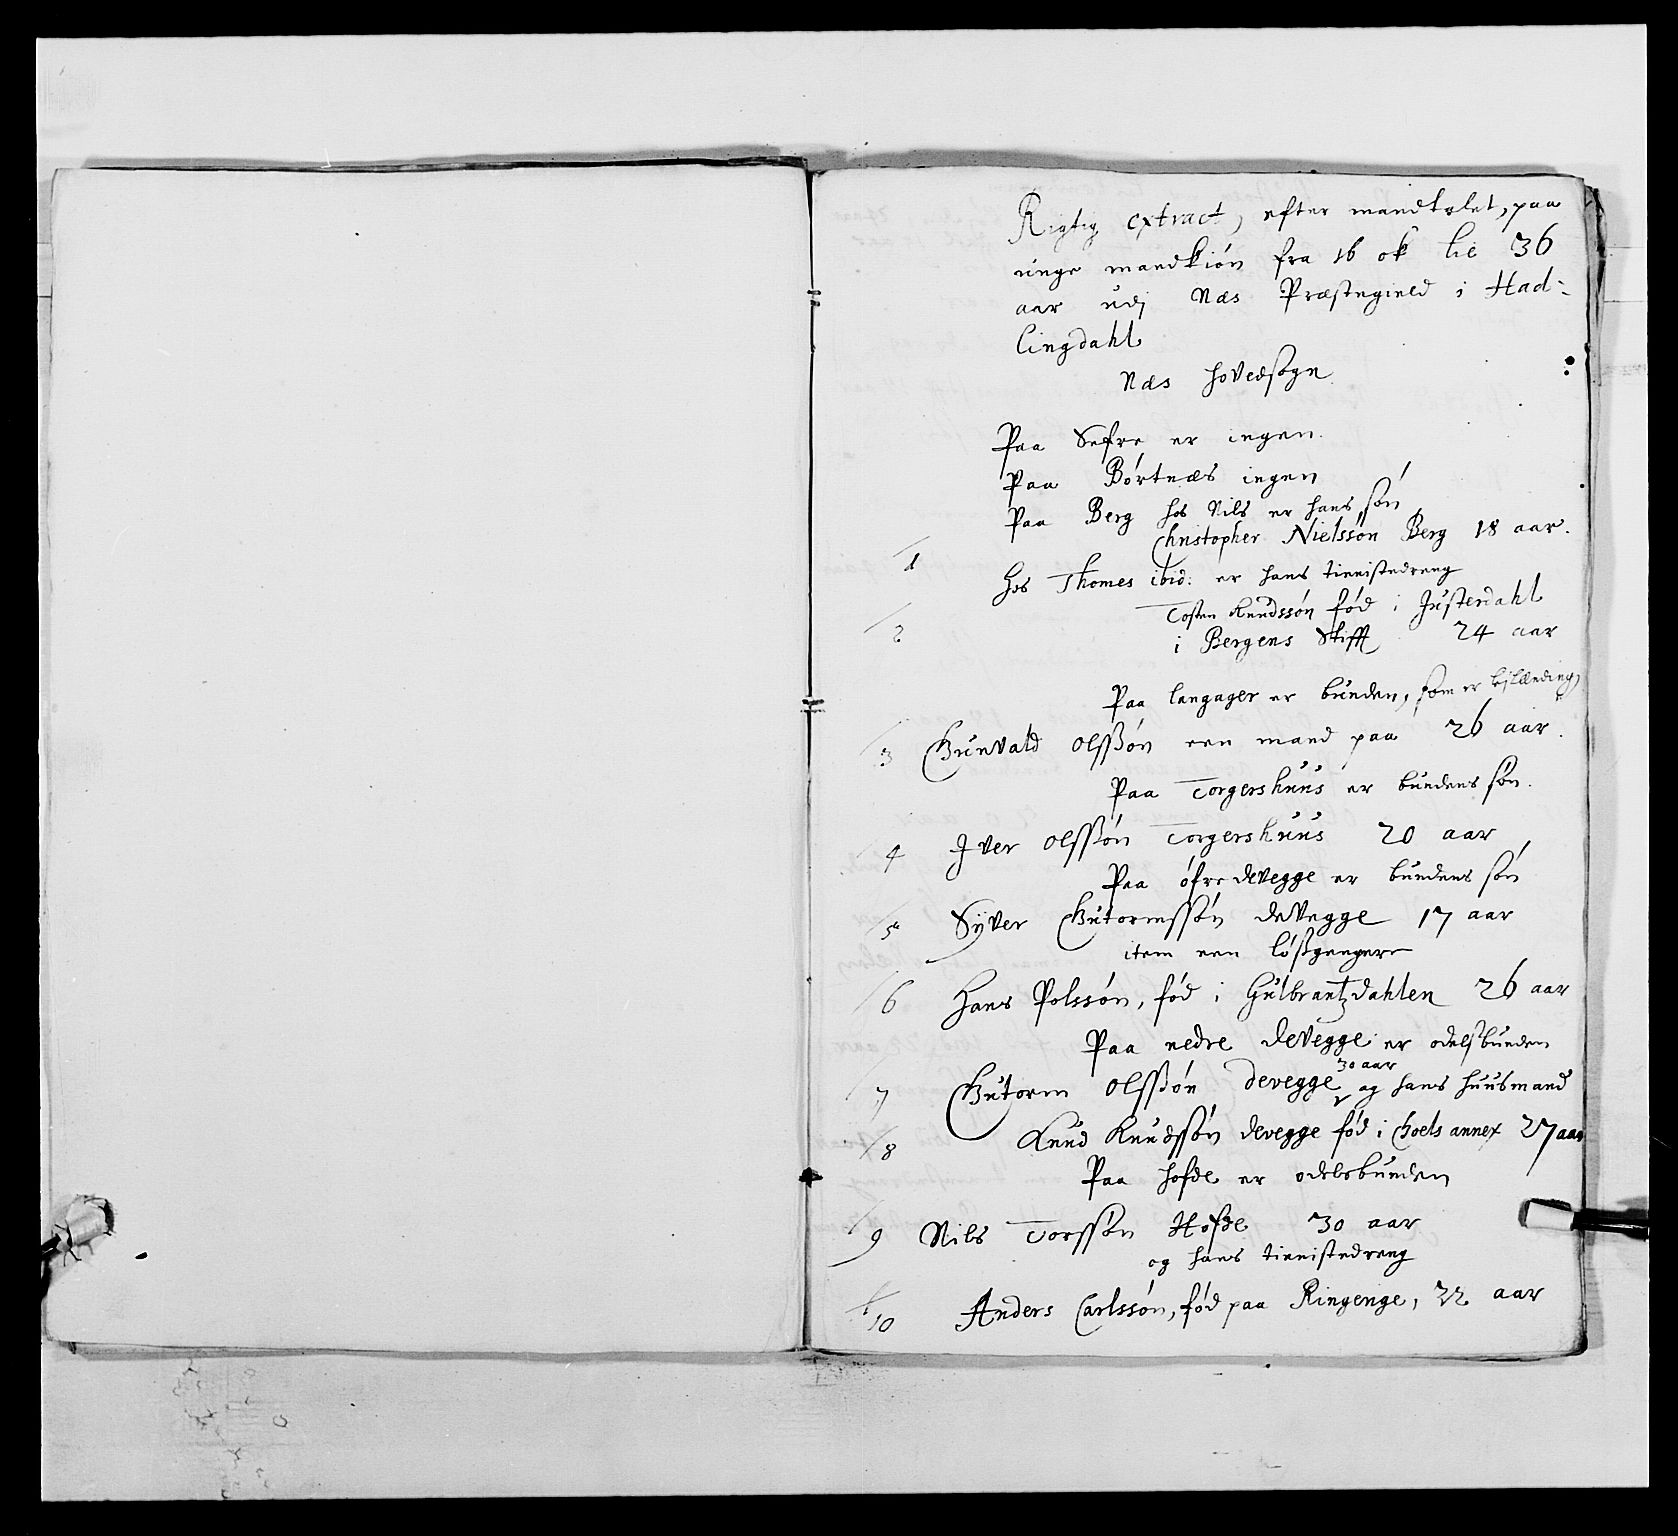 Rigtig extract, efter mandtalet, paa
unge mandkiøn fra 16 ok til 36
aar udj Næs Præstegield i Had-
lingdahl
Næs hovedsogn
Paa Sefre er ingen.
Paa Børtnæs ingen
Paa Berg hos Nils er hans søn
1 Christopher Nielssøn Berg 18 aar.
hos Thomes ibid: er hans tienistedreng
2 Tosten Knudssøn fød i Justerdahl
i Bergens Stifft 24 aar
Paa langager er bunden, som er
3 Gunvald Olssøn een mand paa 26 aar.
Paa Torgershuus er bundens søn.
4 Iver Olssøn Torgershuus 20 aar
Paa øfre devegge er bundens søn
5 Syver Gutormssøn devegge 17 aar
item een løsgengere
6 Hans Polssøn, fød i Gulbrantzdahlen 26 aar
Paa nedre devegge er odelsbunden
7 Gutorm Olssøn devegge 30 aar og hans huusmand
8 Knud Knudssøn devegge fød i hoels annex 27 aar
Paa hofde er odelsbunden
9 Nils Torssøn Hofde 30 aar
og hans tienistedreng
10 Anders Carlssøn, fød paa Ringerige, 22 aar